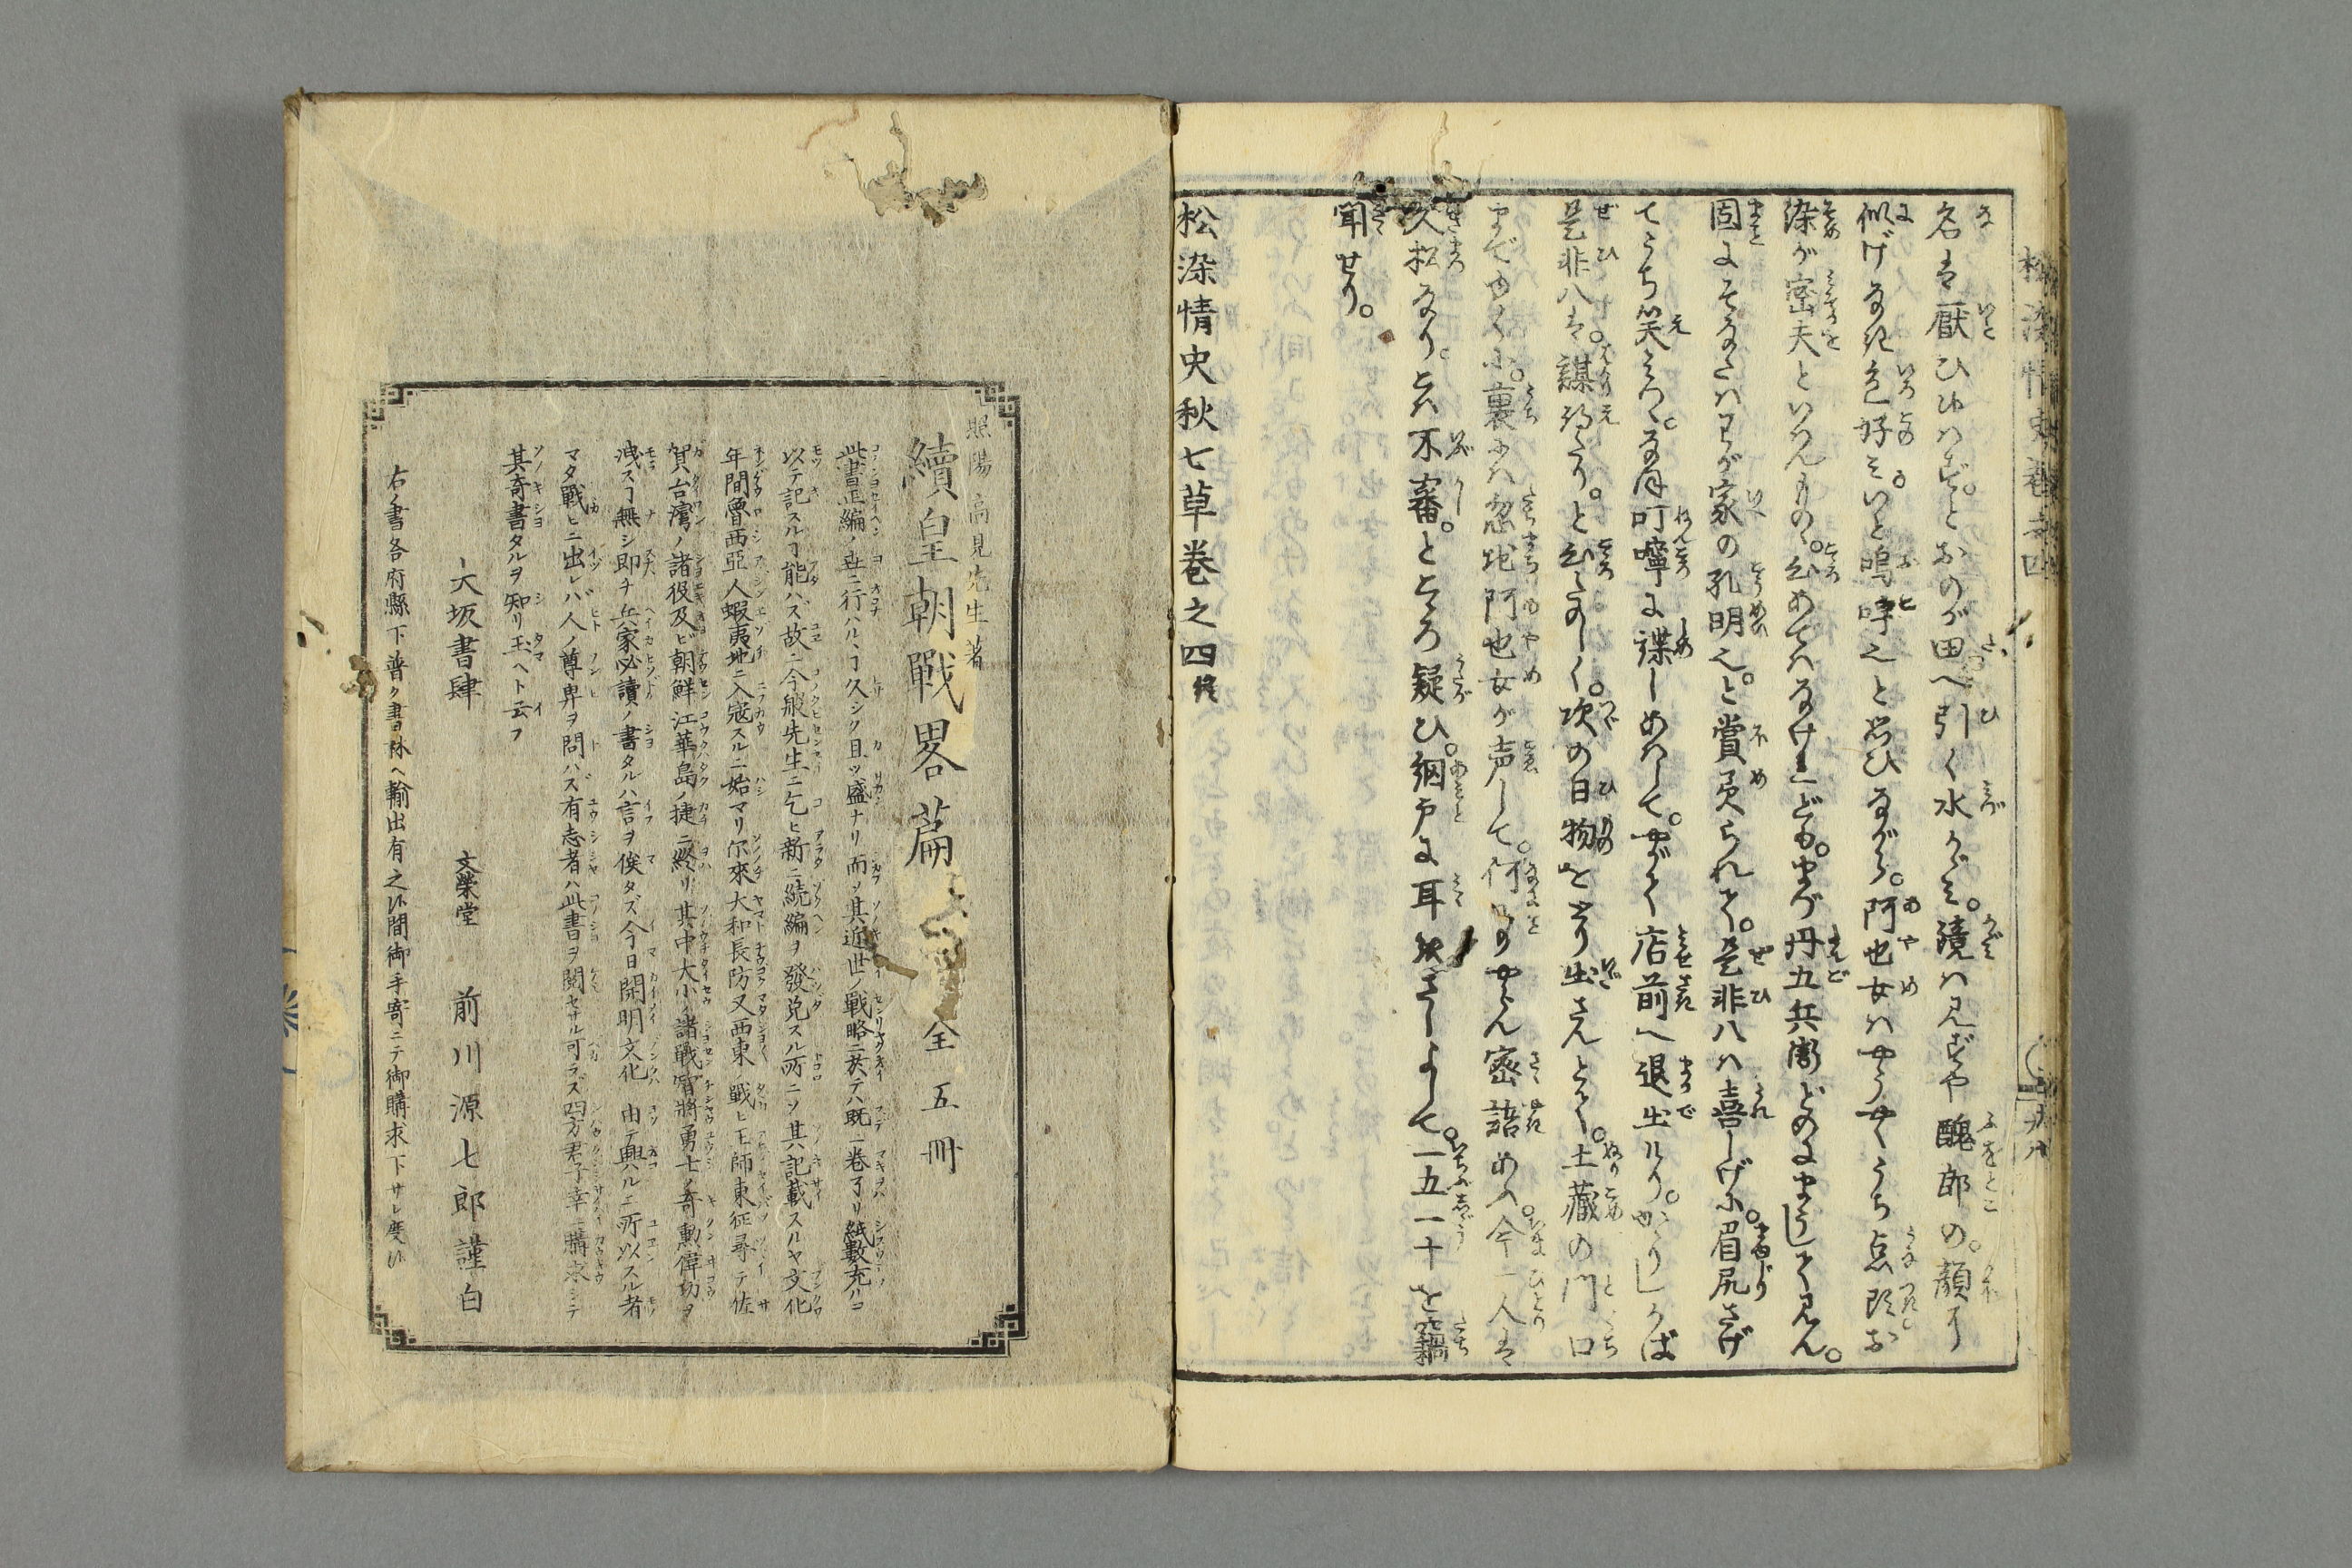 名は厭ひゆはずとおのが田へ引く水かゞみ。鏡は見ずや醜郎の。顔に
似げなき色好み。いと嗚呼也と思ひながら。阿也女はやう〳〵うち点頭。お
染が密夫といはんもの。出めてはなけれども。まづ丹五兵衛どのにまうして見ん。
固よそなたはわが家の孔明也。と賞美られて。是非八は喜しげに。眉尻さげ
てうち笑みつ。なほ叮嚀に諜しめはして。やがて店前へ退出けり。かゝりしかば
是非八は。謀得たり。とたのしく。次の日物をとり出さんとて。土藏の門口
までゆくに。裏には忽地阿也女が声して。何事やらん密語めく。今一人は
久松なり。こは不審。ところ疑ひ。網戸に耳をさしよして。一五一十を竊
聞せり。
松染情史秋七草巻之四終
照陽 高見先生著
續皇朝戰畧篇 全五冊
此書正編ノ世ニ行ハル、ヿ久シク且ツ盛ナリ而ソ其近世ノ戰略ニ至テハ既ニ卷了リ紙數充ルヿ
以テ記スルヿ能ハズ故ニ今般先生ニ乞ヒ新ニ続編ヲ發兌スル所ニソ其記載スルヤ文化
年間魯西亞人蝦夷地ニ入寇スルニ始マリ尓來大和長防又西東ノ戰ヒ王師東征尋テ佐
賀台灣ノ諸役及ビ朝鮮江華島ノ捷ニ終リ其中大小ノ諸戰智將勇士ノ奇勳偉功ヲ
洩スヿ無シ即チ兵家必讀ノ書タルハ言ヲ俟タズ今日開明文化ノ由テ興ルニ所以スル者
マタ戰ヒニ出レバ人ノ尊卑ヲ問ハズ有志者ハ此書ヲ閲セザル可ラズ四方君子幸ニ購求シテ
其奇書タルヲ知リ玉ヘト云フ
大坂書肆 文榮堂 前川源七郎謹白
右ノ書各府縣下普ク書林ヘ輸出有之候間御手寄ニテ御購求下サレ度候